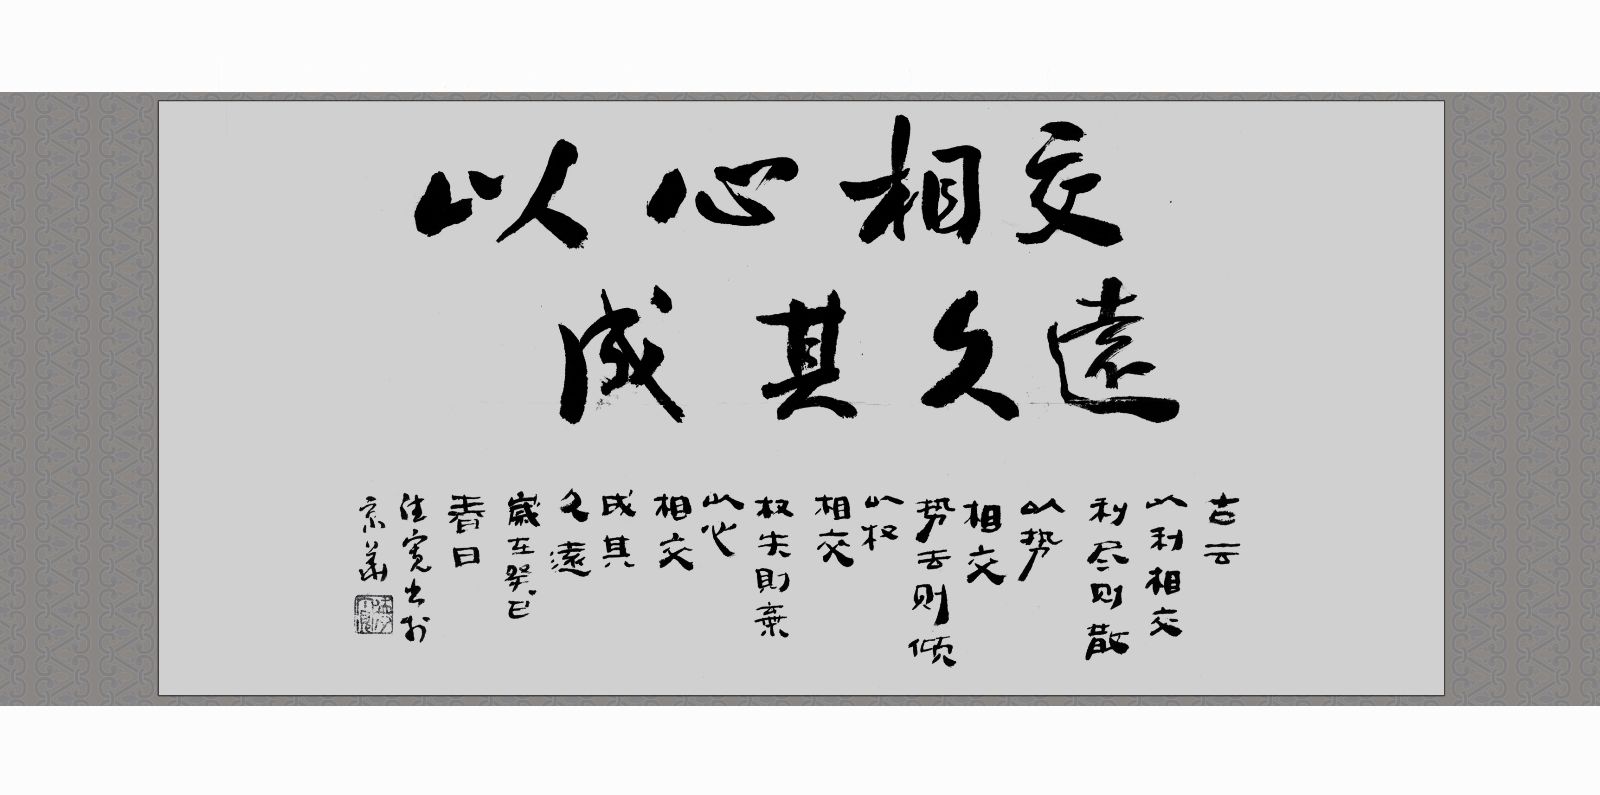 以心相交
成其久遠
古云
以利相交
利尽则散
以势
相交
势去则倾
以权
相交
权失則棄
以心
相交
成其
久遠
歲在癸巳
春日
宽书于
京華